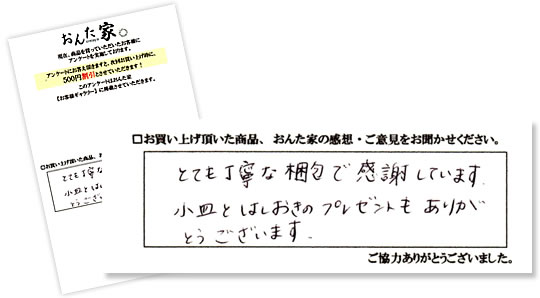 おんた家
現在、商品を買っていただいたお客様に
アンケートを実施しております。
アンケートにお答え頂きますと、次回お買い上げ時に、
500円割引とさせていただきます！
このアンケートはおんた家
【お客様ギャラリー】に掲載させていただきます。
□お買い上げ頂いた商品、お
とても丁寧な
小皿とはし
とうござい
□お買い上げ頂いた商品、おんた家の感想・ご意見をお聞かせください。
とても丁寧な梱包で感謝しています。
小皿とはしおきのプレゼントもありが
とうございます。
ご協力ありがとうございました。